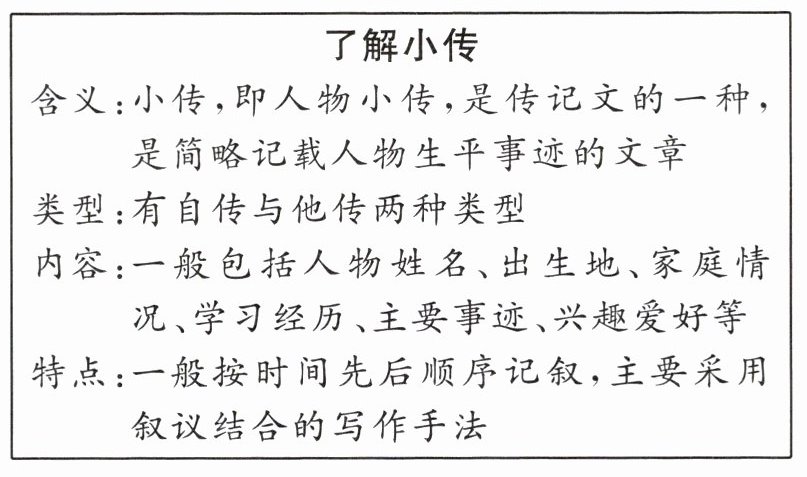 了解小传
含义:小传,即人物小传,是传记文的一种,
是简略记载人物生平事迹的文章
类型:有自传与他传两种类型
内容:一般包括人物姓名、出生地、家庭情
况、学习经历、主要事迹、兴趣爱好等
特点:一般按时间先后顺序记叙,主要采用
叙议结合的写作手法